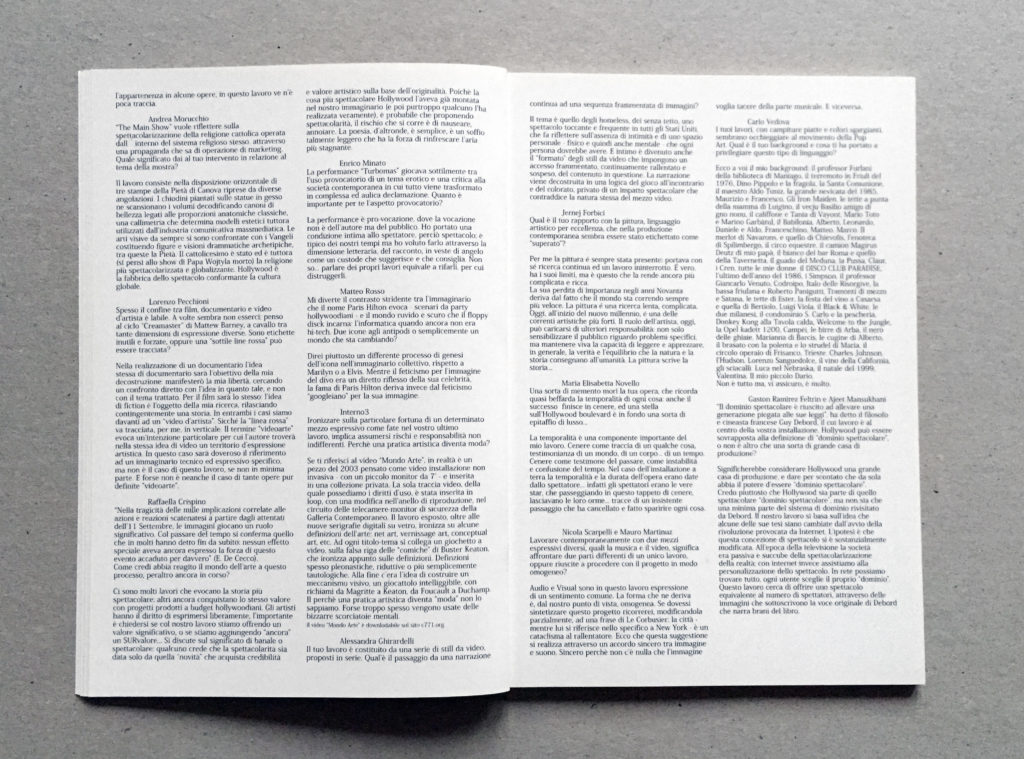 l'appartenenza in alcune opere, in questo lavoro se n'è
poca traccia.
Andrea Morucchio
"The Main Show" vuole riflettere sulla
spettacolarizzazione della religione cattolica operata
dall' interno del sistema religioso stesso attraverso
una propaganda che sa di operazione di marketing.
Quale significato dai al tuo intervento in relazione al
tema della mostra?
Il lavoro consiste nella disposizione orizzontale di
tre stampe della Pietà di Canova riprese da diverse
angolazioni. I chiodini piantati sulle statue in gesso
ne scansionano i volumi decodificando canoni di
bellezza legati alle proporzioni anatomiche classiche,
una callimetria che determina modelli estetici tuttora
utilizzati dall'industria comunicativa massmediatica. Le
arti visive da sempre si sono confrontate con i Vangeli
costituendo figure e visioni drammatiche archetipiche,
tra queste la Pietà. Il cattolicesimo è stato ed è tuttora
(si pensi allo show di Papa Wojtyla morto) la religione
più spettacolarizzata e globalizzante. Hollywood è
la fabbrica dello spettacolo conformante la cultura
globale.
Lorenzo Pecchioni
Spesso il confine tra film, documentario e video
d'artista è labile. A volte sembra non esserci: penso
al ciclo "Creamaster" di Mattew Barney, a cavallo tra
tante dimensioni di espressione diverse. Sono etichette
inutili e forzate, oppure una "sottile line rossa" può
essere tracciata?
Nella realizzazione di un documentario l'idea
stessa di documentario sarà l'obiettivo della mia
decostruzione: manifesterò la mia libertà, cercando
un confronto diretto con l'idea in quanto tale, e non
con il tema trattato. Per il film sarà lo stesso: l'idea
di fiction è l'oggetto della mia ricerca, rifasciando
contingentemente una storia. In entrambi i casi siamo
davanti ad un "video d'artista". Sicché la "linea rossa"
va tracciata, per me, in verticale. Il termine "videoarte"
evoca un'intenzione particolare per cui l'autore troverà
nella stessa idea di video un territorio d'espressione
artistica. In questo caso sarà doveroso il riferimento
ad un immaginario tecnico ed espressivo specifico,
ma non è il caso di questo lavoro, se non in minima
parte. E forse non è neanche il caso di tante opere pur
definite "videoarte".
Raffaella Crispino
"Nella tragicità delle mille implicazioni correlate alle
azioni e reazioni scatenatesi a partire dagli attentati
dell'11 Settembre, le immagini giocano un ruolo
significativo. Col passare del tempo si conferma quello
che in molti hanno detto fin da subito: nessun effetto
speciale aveva ancora espresso la forza di questo
evento accaduto per davvero" (E. De Cecco).
Come credi abbia reagito il mondo dell'arte a questo
processo, peraltro ancora in corso?
Ci sono molti lavori che evocano la storia più
spettacolare; altri ancora conquistano lo stesso valore
con progetti prodotti a budget hollywoodiani. Gli artisti
hanno il diritto di esprimersi liberamente, l'importante
è chiedersi se col nostro lavoro stiamo offrendo un
valore significativo, o se stiamo aggiungendo "ancora"
un SURvalore... Si discute sul significato di banale o
spettacolare: qualcuno crede che la spettacolarità sia
data solo da quella "novità" che acquista credibilità
e valore artistico sulla base dell'originalità. Poiché la
cosa più spettacolare Hollywood l'aveva già montata
nel nostro immaginario (e poi purtroppo qualcuno l'ha
realizzata veramente), è probabile che proponendo
spettacolarità, il rischio che si corre è di nauseare,
annoiare. La poesia, d'altronde, è semplice, è un soffio
talmente leggero che ha la forza di rinfrescare l'aria
più stagnante.
Enrico Minato
La performance "Turbomas" giocava sottilmente tra
l'uso provocatorio di un tema erotico e una critica alla
società contemporanea in cui tutto viene trasformato
in complessa ed aulica declamazione. Quanto è
importante per te l'aspetto provocatorio?
La performance è pro-vocazione, dove la vocazione
non è dell'autore ma del pubblico. Ho portato una
condizione intima allo spettatore, perciò spettacolo; è
tipico dei nostri tempi ma ho voluto farlo attraverso la
dimensione letteraria, del racconto, in veste di angelo
come un custode che suggerisce e che consiglia. Non
so... parlare dei propri lavori equivale a rifarli, per cui
distruggerli.
Matteo Rosso
Mi diverte il contrasto stridente tra l'immaginario
che il nome Paris Hilton evoca - scenari da party
hollywoodiani - e il mondo ruvido e scuro che il floppy
disck incarna: l'informatica quando ancora non era
hi-tech. Due icone agli antipodi o semplicemente un
mondo che sta cambiando?
Direi piuttosto un differente processo di genesi
dell'icona nell'immaginario collettivo, rispetto a
Marilyn o a Elvis. Mentre il feticismo per l'immagine
del divo era un diretto riflesso della sua celebrità,
la fama di Paris Hilton deriva invece dal feticismo
"googleiano" per la sua immagine.
Interno3
Ironizzare sulla particolare fortuna di un determinato
mezzo espressivo come fate nel vostro ultimo
lavoro, implica assumersi rischi e responsabilità non
indifferenti. Perché una pratica artistica diventa moda?
Se ti riferisci al video "Mondo Arte", in realtà è un
pezzo del 2003 pensato come video installazione non
invasiva - con un piccolo monitor da 7" - e inserita
in una collezione privata. La sola traccia video, della
quale possediamo i diritti d'uso, è stata inserita in
loop, con una modifica nell'anello di riproduzione, nel
circuito delle telecamere monitor di sicurezza della
Galleria Contemporaneo. Il lavoro esposto, oltre alle
nuove serigrafie digitali su vetro, ironizza su alcune
definizioni dell'arte: net art, vernissage art, conceptual
art, etc. Ad ogni titolo-tema si collega un giochetto a
video, sulla falsa riga delle "comiche" di Buster Keaton,
che ironizza appunto sulle definizioni. Definizioni
spesso pleonastiche, riduttive o più semplicemente
tautologiche. Alla fine c'era l'idea di costruire un
meccanismo visivo, un giocattolo intelliggibile, con
richiami da Magritte a Keaton, da Foucault a Duchamp.
Il perché una pratica artistica diventa "moda" non lo
sappiamo. Forse troppo spesso vengono usate delle
bizzarre scorciatoie mentali.
Il video "Mondo Arte" è downlodabile sul sito c771.org
Alessandra Ghirardelli
Il tuo lavoro è costituito da una serie di still da video,
proposti in serie. Qual'è il passaggio da una narrazione
continua ad una sequenza frammentata di immagini?
Il tema è quello degli homeless, dei senza tetto, uno
spettacolo toccante e frequente in tutti gli Stati Uniti,
che fa riflettere sull'assenza di intimità e di uno spazio
personale - fisico e quindi anche mentale - che ogni
persona dovrebbe avere. E intimo è divenuto anche
il "formato" degli still da video che impongono un
accesso frammentato, continuamente rallentato e
sospeso, del contenuto in questione. La narrazione
viene decostruita in una logica del gioco all'incontrario
e del colorato, privato di un impatto spettacolare che
contraddice la natura stessa del mezzo video.
Jernej Forbici
Qual è il tuo rapporto con la pittura, linguaggio
artistico per eccellenza, che nella produzione
contemporanea sembra essere stato etichettato come
"superato"?
Per me la pittura è sempre stata presente; portava con
sé ricerca continua ed un lavoro ininterrotto. È vero,
ha i suoi limiti, ma è questo che la rende ancora più
complicata e ricca.
La sua perdita di importanza negli anni Novanta
deriva dal fatto che il mondo sta correndo sempre
più veloce. La pittura è una ricerca lenta, complicata.
Oggi, all'inizio del nuovo millennio, è una delle
correnti artistiche più forti. Il ruolo dell'artista, oggi,
può caricarsi di ulteriori responsabilità: non solo
sensibilizzare il pubblico riguardo problemi specifici,
ma mantenere viva la capacità di leggere e apprezzare,
in generale, la verità e l'equilibrio che la natura e la
storia consegnano all'umanità. La pittura scrive la
storia...
Maria Elisabetta Novello
Una sorta di memento mori la tua opera, che ricorda
quasi beffarda la temporalità di ogni cosa: anche il
successo finisce in cenere, ed una stella
sull'Hollywood boulevard è in fondo una sorta di
epitaffio di lusso...
La temporalità è una componente importante del
mio lavoro. Cenere come traccia di un qualche cosa,
testimonianza di un mondo, di un corpo... di un tempo.
Cenere come testimone del passare, come instabilità
e confusione del tempo. Nel caso dell'installazione a
terra la temporalità e la durata dell'opera erano date
dallo spettatore... infatti gli spettatori erano le vere
star, che passeggiando in questo tappeto di cenere,
lasciavano le loro orme... tracce di un insistente
passaggio che ha cancellato e fatto sparire ogni cosa.
Nicola Scarpelli e Mauro Martinuz
Lavorare contemporaneamente con due mezzi
espressivi diversi, quali la musica e il video, significa
affrontare due parti differenti di un unico lavoro,
oppure riuscite a procedere con il progetto in modo
omogeneo?
Audio e Visual sono in questo lavoro espressione
di un sentimento comune. La forma che ne deriva
è, dal nostro punto di vista, omogenea. Se dovessi
sintetizzare questo progetto ricorrerei, modificandola
parzialmente, ad una frase di Le Corbusier: la città -
mentre lui si riferisce nello specifico a New York - è un
cataclisma al rallentatore. Ecco che questa suggestione
si realizza attraverso un accordo sincero tra immagine
e suono. Sincero perché non c'è nulla che l'immagine
voglia tacere della parte musicale. E viceversa.
Carlo Vedova
I tuoi lavori, con campiture piatte e colori sgargianti,
sembrano occheggiare al movimento della Pop
Art. Qual è il tuo background e cosa ti ha portato a
privilegiare questo tipo di linguaggio?
Ecco a voi il mio background: il professor Furlani
della biblioteca di Maniago, il terremoto in Friuli del
1976, Dino Pippolo e la fragola, la Santa Comunione,
il maestro Aldo Tussiz, la grande nevicata del 1985,
Maurizio e Francesco, Gli Iron Maiden, le tette a punta
della mamma di Luigino, il vecju Basilio amigo di
gno nono, il califfone e Tanta di Vayont, Mario Toto
e Marino Garband, il Babilonia, Alberto, Leonardo,
Daniele e Aldo, Franceschino, Matteo, Marco, Il
merlot di Navarons, e quello di Chievolis, l'enoteca
di Spilimbergo, il circo equestre, il camion Magirus
Deutz di mio papà, il bianco del bar Roma e quello
della Tavernetta, il guado del Meduna, la Pussa, Claut,
i Cren, tutte le mie donne, il DISCO CLUB PARADISE,
l'ultimo dell'anno del 1986, i Simpson, il professor
Giancarlo Venuto, Codroipo, Italo delle Risorgive, la
bassa friulana e Roberto Panigutti, Tramonti di mezzo
e Satana, le tette di Ester, la festa del vino a Casarsa
e quella di Bertiolo, Luigi Viola, il Black & White, le
due milanesi, il condominio S. Carlo e la pescheria,
Donkey Kong alla Tavola calda, Welcome to the Jungle,
la Opel kadett 1200, Campei, le birre di Arba, il nero
delle ghiaie, Marianna di Barcis, le cugine di Alberto,
il brasato con la polenta e lo strudel di Maria, il
circolo operaio di Frisanco, Trieste, Charles Johnson,
l'Hudson, Lorenzo Sanguedolce, il vino della California,
gli sciacalli, Luca nel Nebraska, il natale del 1999,
Valentina, Il mio piccolo Dario.
Non è tutto ma, vi assicuro, è molto.
Gaston Ramirez Feltrin e Ajeet Mansukhani
"Il dominio spettacolare è riuscito ad allevare una
generazione piegata alle sue leggi", ha detto il filosofo
e cineasta francese Guy Debord, il cui lavoro è al
centro della vostra installazione. Hollywood può essere
sovrapposta alla definizione di "dominio spettacolare",
o non è altro che una sorta di grande casa di
produzione?
Significherebbe considerare Hollywood una grande
casa di produzione, e dare per scontato che da sola
abbia il potere d'essere "dominio spettacolare".
Credo piuttosto che Hollywood sia parte di quello
spettacolare "dominio spettacolare", ma non sia che
una minima parte del sistema di dominio rivisitato
da Debord. Il nostro lavoro si basa sull'idea che
alcune delle sue tesi siano cambiate dall'avvio della
rivoluzione provocata da Internet. L'ipotesi è che
questa concezione di spettacolo si è sostanzialmente
modificata. All'epoca della televisione la società
era passiva e succube della spettacolarizzazione
della realtà; con internet invece assistiamo alla
personalizzazione dello spettacolo. In rete possiamo
trovare tutto, ogni utente sceglie il proprio "dominio".
Questo lavoro cerca di offrire uno spettacolo
equivalente al numero di spettatori, attraverso delle
immagini che sottoscrivono la voce originale di Debord
che narra brani del libro.